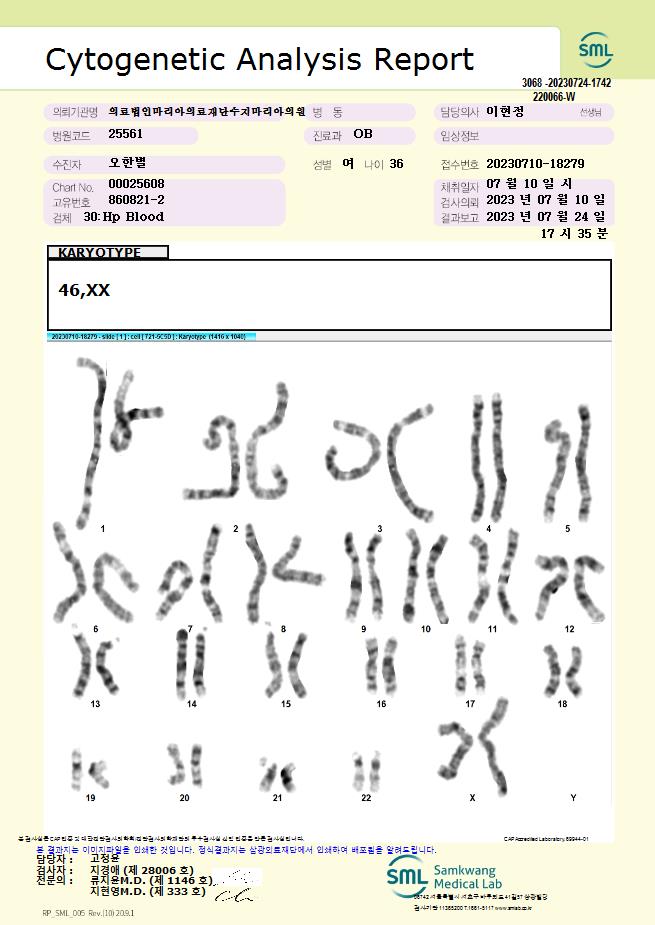 Cytogenetic Analysis Report
SML
3068 -20230724-1742
220066-W
의뢰기관명 의료법인마리아의료재단수지마리아의원 병 동
담당의사 이현정 선생님
병원코드 25561 진료과 OB 임상정보
수진자 오한별 성별 여 나이 36 접수번호 20230710-18279
Chart No. 00025608 채취일자 07 월 10 일 시
고유번호 860821-2 검사의뢰 2023 년 07 월 10 일
검체 30:Hp Blood 결과보고 2023 년 07 월 24 일
17 시 35 분
KARYOTYPE
46,XX
20230710-18279 - slide [ 1 ] : cell [ 721-5C5D ] : Karyotype (1416 x 1040)
1 2 3 4 5
6 7 8 9 10 11 12
13 14 15 16 17 18
19 20 21 22 X Y
CAP Accredited Laboratory
본 결과지는 이미지파일을 인쇄한 것입니다. 정식결과지는 삼광의료재단에서 인쇄하여 배포됨을 알려드립니다.
담당자 : 고정윤
검사자 : 지경애 (제 28006 호)
전문의 : 류지윤M.D. (제 1146 호)
지현영M.D. (제 333 호)
SML Samkwang
Medical Lab
RP_SML_005 Rev.(10) 20.9.1